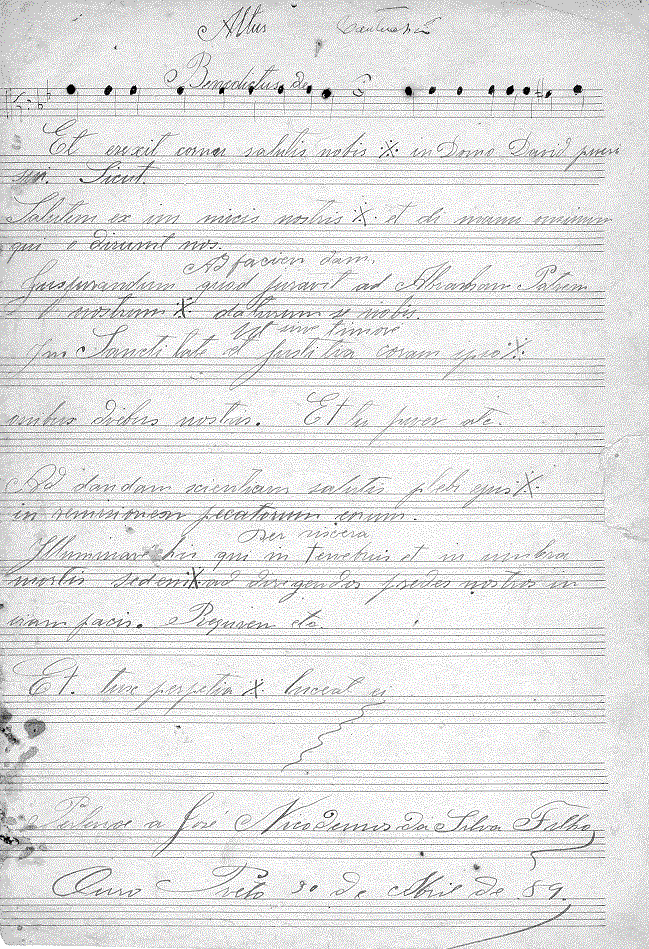 Altus
Benedictus de
Et erexit cornu salutis nobis ·X· in Domo David pueri
sui. Sicut.
Salutem ex ini micis nostris ·X· et de manu omnium
qui o dirunt nos.
Ad facien dam.
Jusjurandum quod juravit ad Abraham Patrem
nostrum ·X· daturum se nobis.
Ut sine timore
In Sancti tate et Justitia coram ipso ·X·
omibus diebus nostris. Et tu puer etc.
Ad dandam scientiam salutis plebi ejus ·X·
in remisionem pecatorum eorum.
Per viscera
Illuminare his qui in tenebris et in umbra
mortis sedent ·X· ad dirigendos pedes nostros in
viam pacis. Requiem etc.
Et. lux perpetua ·X· luceat ei
Pertence a José Nicodemos da Silva Filho
Ouro Preto 30 de Abril de 89.